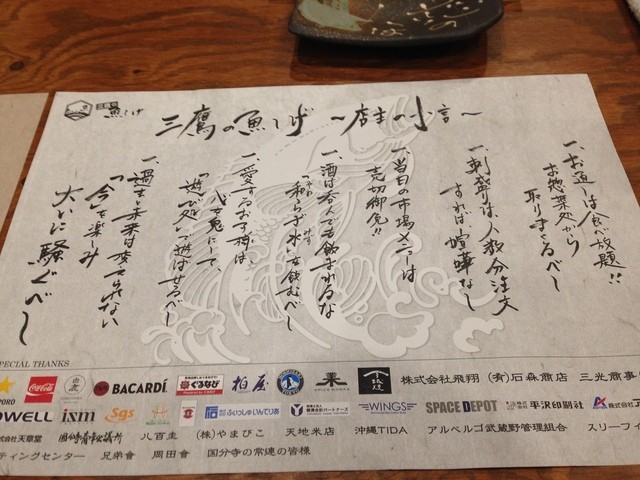 魚しげ
三鷹の魚しげ 〜店主の小言〜
一、お通しは食べ放題!!
お惣菜処から
取りまくるべし
一、刺盛りは人数分注文
すれば喧嘩なし
一、当日の市場メニューは
売切御免!!
一、酒は呑んでも飲まれるな
「和らぎ水」を飲むべし
一、愛するお子様は
「遊び処」で遊ばせるべし
一、過去と未来は変えられない
「今」を楽しみ
大いに騒ぐべし
SPECIAL THANKS
Coca-Cola BACARDÍ ぐるなび 柏屋 株式会社飛翔 (有)石森商店 三光商事
ism Sgs WINGS SPACE DEPOT 平沢印刷社
天草堂 八百圭 (株)やまびこ 天地米店 沖縄TIDA アルベルゴ武蔵野管理組合 スリーフ
ティングセンター 兄弟會 岡田會 国分寺の常連の皆様